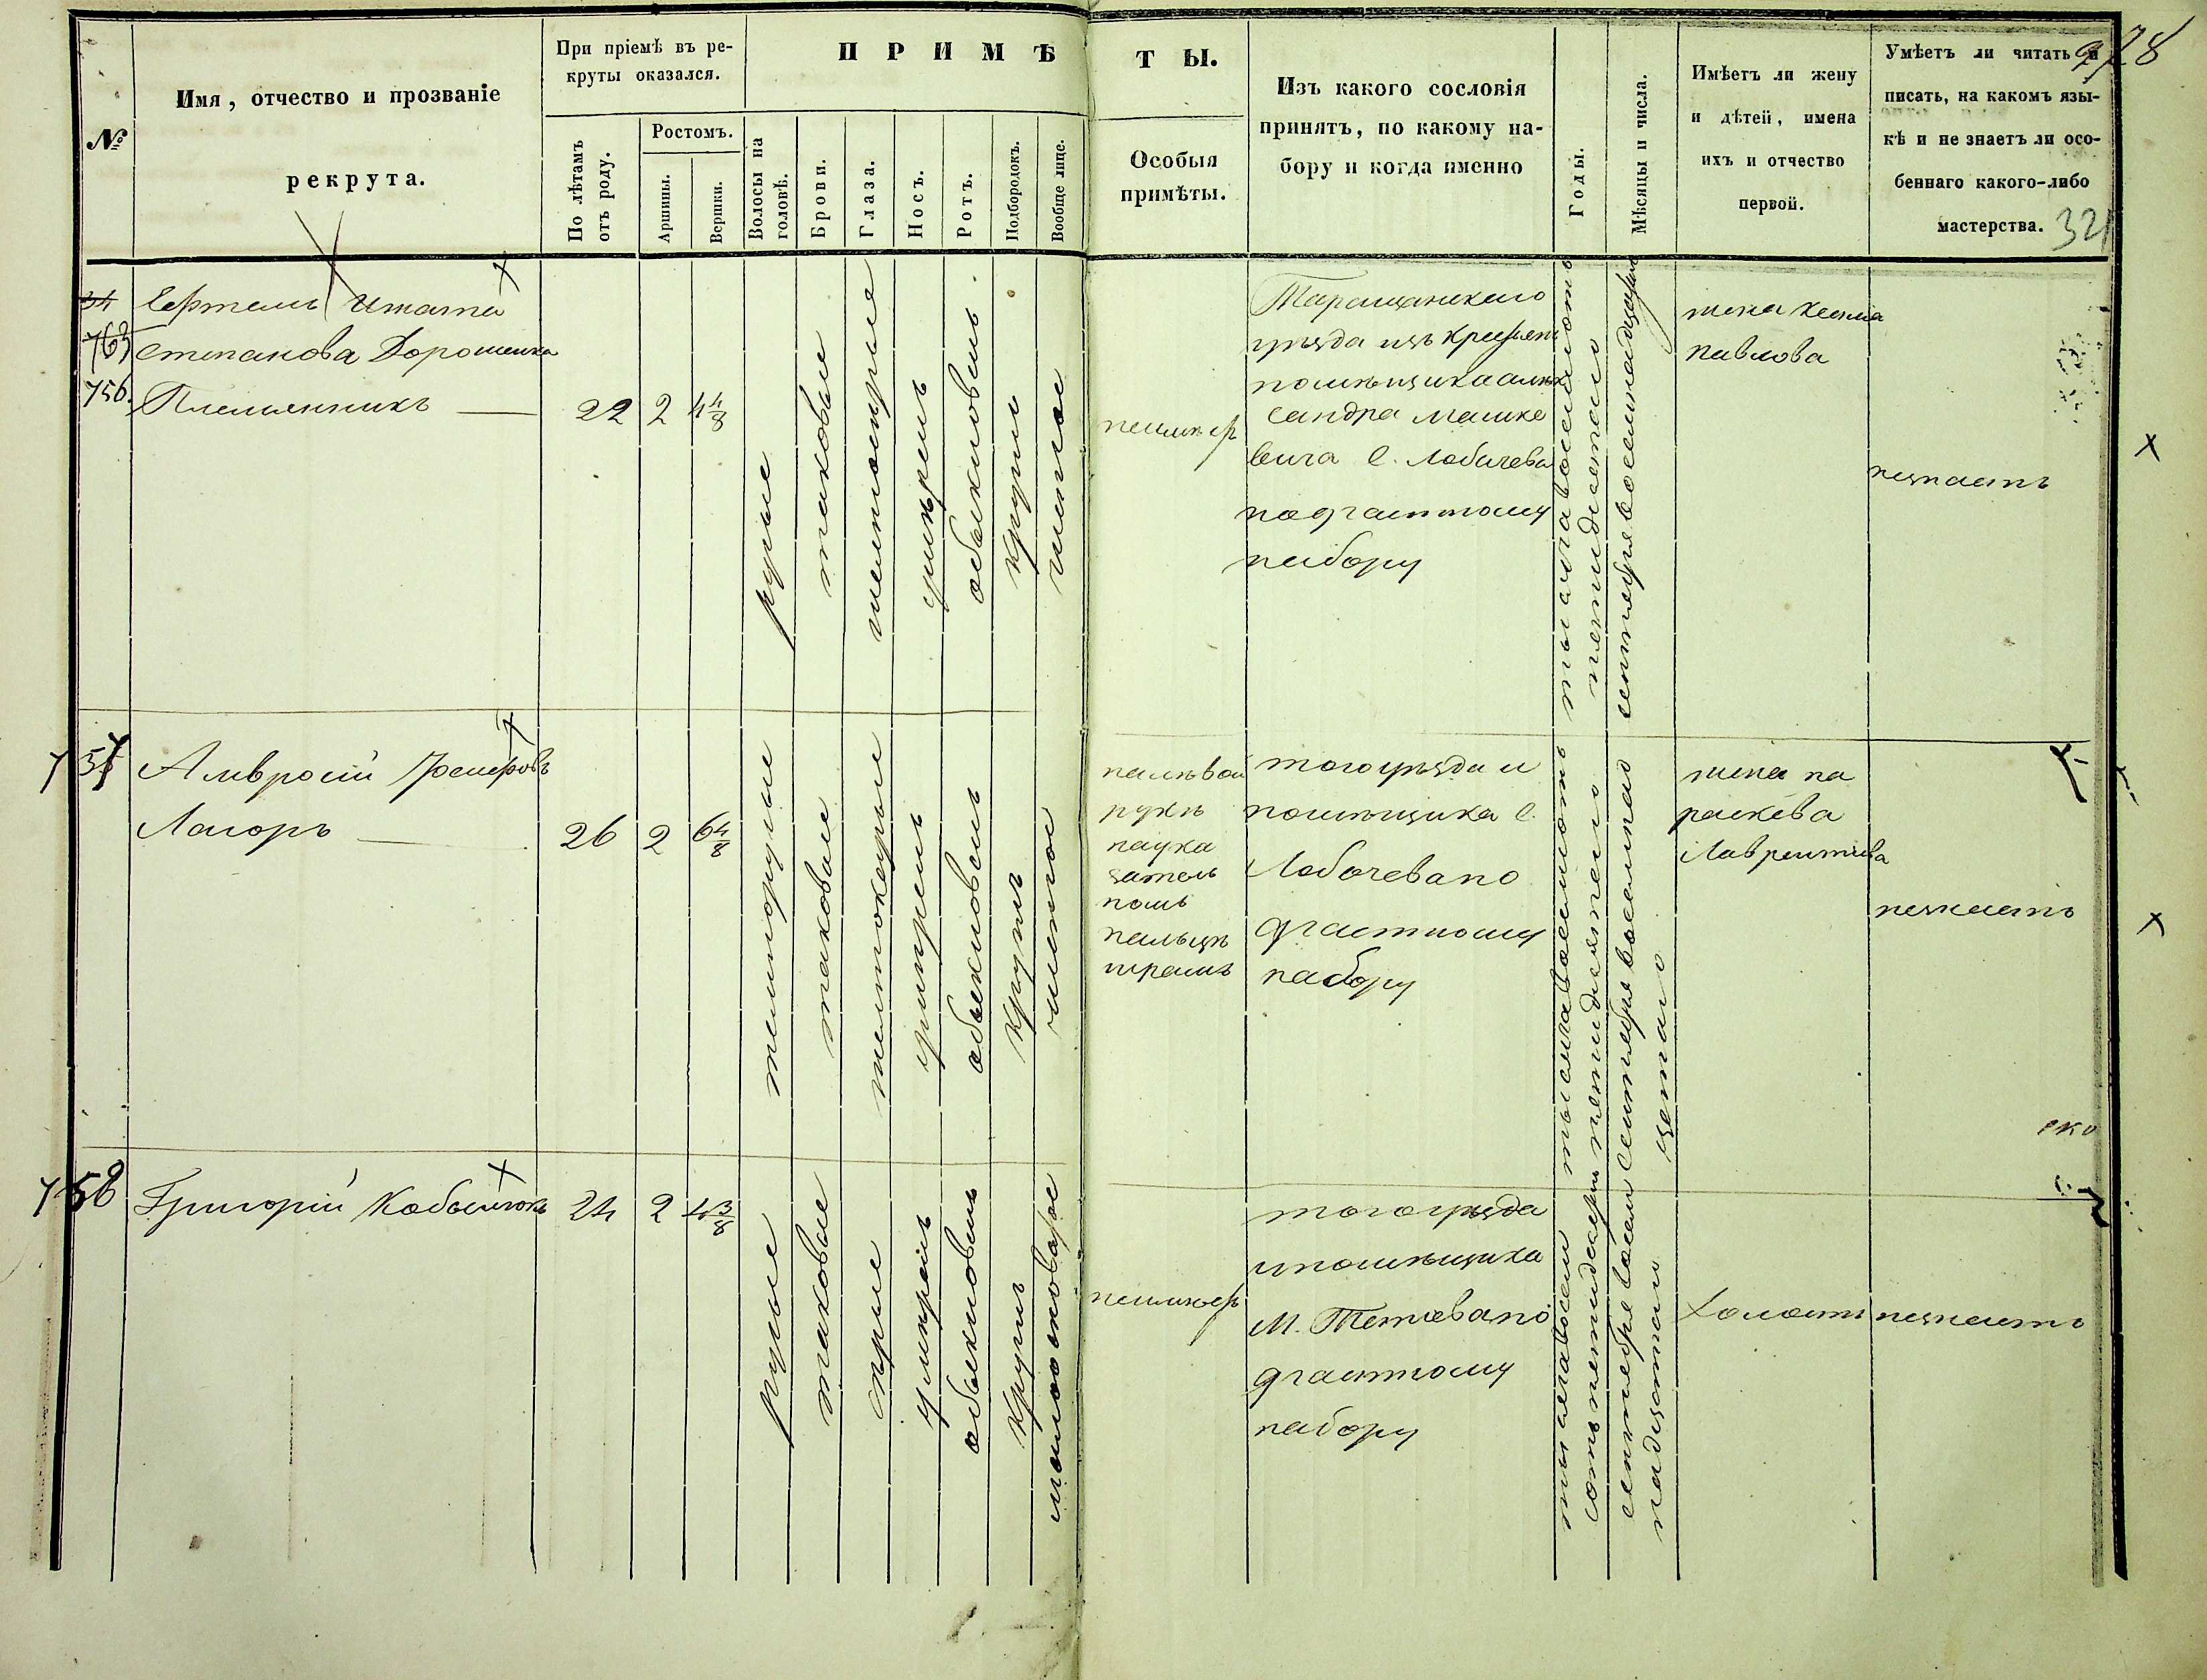 928
321
№
Имя, отчество и прозваніе
рекрута.
При пріемѣ въ ре-
круты оказался.
По лѣтамъ
отъ роду.
Ростомъ.
Аршины.
Вершки.
ПРИМѢТЫ.
Волосы на
головѣ.
Брови.
Глаза.
Носъ.
Ротъ.
Подбородокъ.
Вообще лице.
Особыя
примѣты.
Изъ какого сословія
принятъ, по какому на-
бору и когда именно
Годы.
Мѣсяцы и числа.
Имѣетъ ли жену
и дѣтей, имена
ихъ и отчество
первой.
Умѣетъ ли читать и
писать, на какомъ язы-
кѣ и не знаетъ ли осо-
беннаго какого-либо
мастерства.
34
763
756.
Степанова Дорошенка
Племянникъ
22
2
4 4/8
русые
таковые
желтосерые
обыкновенъ
круглъ
чистое
неимѣетъ
Таращанскаго
уезда изъ крестьянъ
помѣщика алек
сандра Машке
вича С. Лобачева
по 9 частному
набору
тысяча восемьсотъ
пятидесятаго
сентября восемнадцатаго
жена
Павлова
незнаетъ
757
Амвросій
26
2
6 4/8
темнорусые
таковые
обыкновенъ
круглъ
чистое
на лѣвой
рукѣ
на ука
зательномъ
пальцѣ
шрамъ
того уѣзда и
помѣщика С.
Лобачева по
9 частному
набору
тысяча восемьсотъ
пятидесятаго
сентября восемнад
цатаго
жена Па
раскева
Лаврентіева
незнаетъ
758
Григорій
24
2
4 3/8
русые
таковые
серые
умѣренъ
обыкновенъ
круглъ
неимѣетъ
того уѣзда
и помѣщика
М. Тетіева по
9 частному
набору
тысяча восем
сотъ пятидесятаго
сентября восем
надцатаго
холостъ
незнаетъ